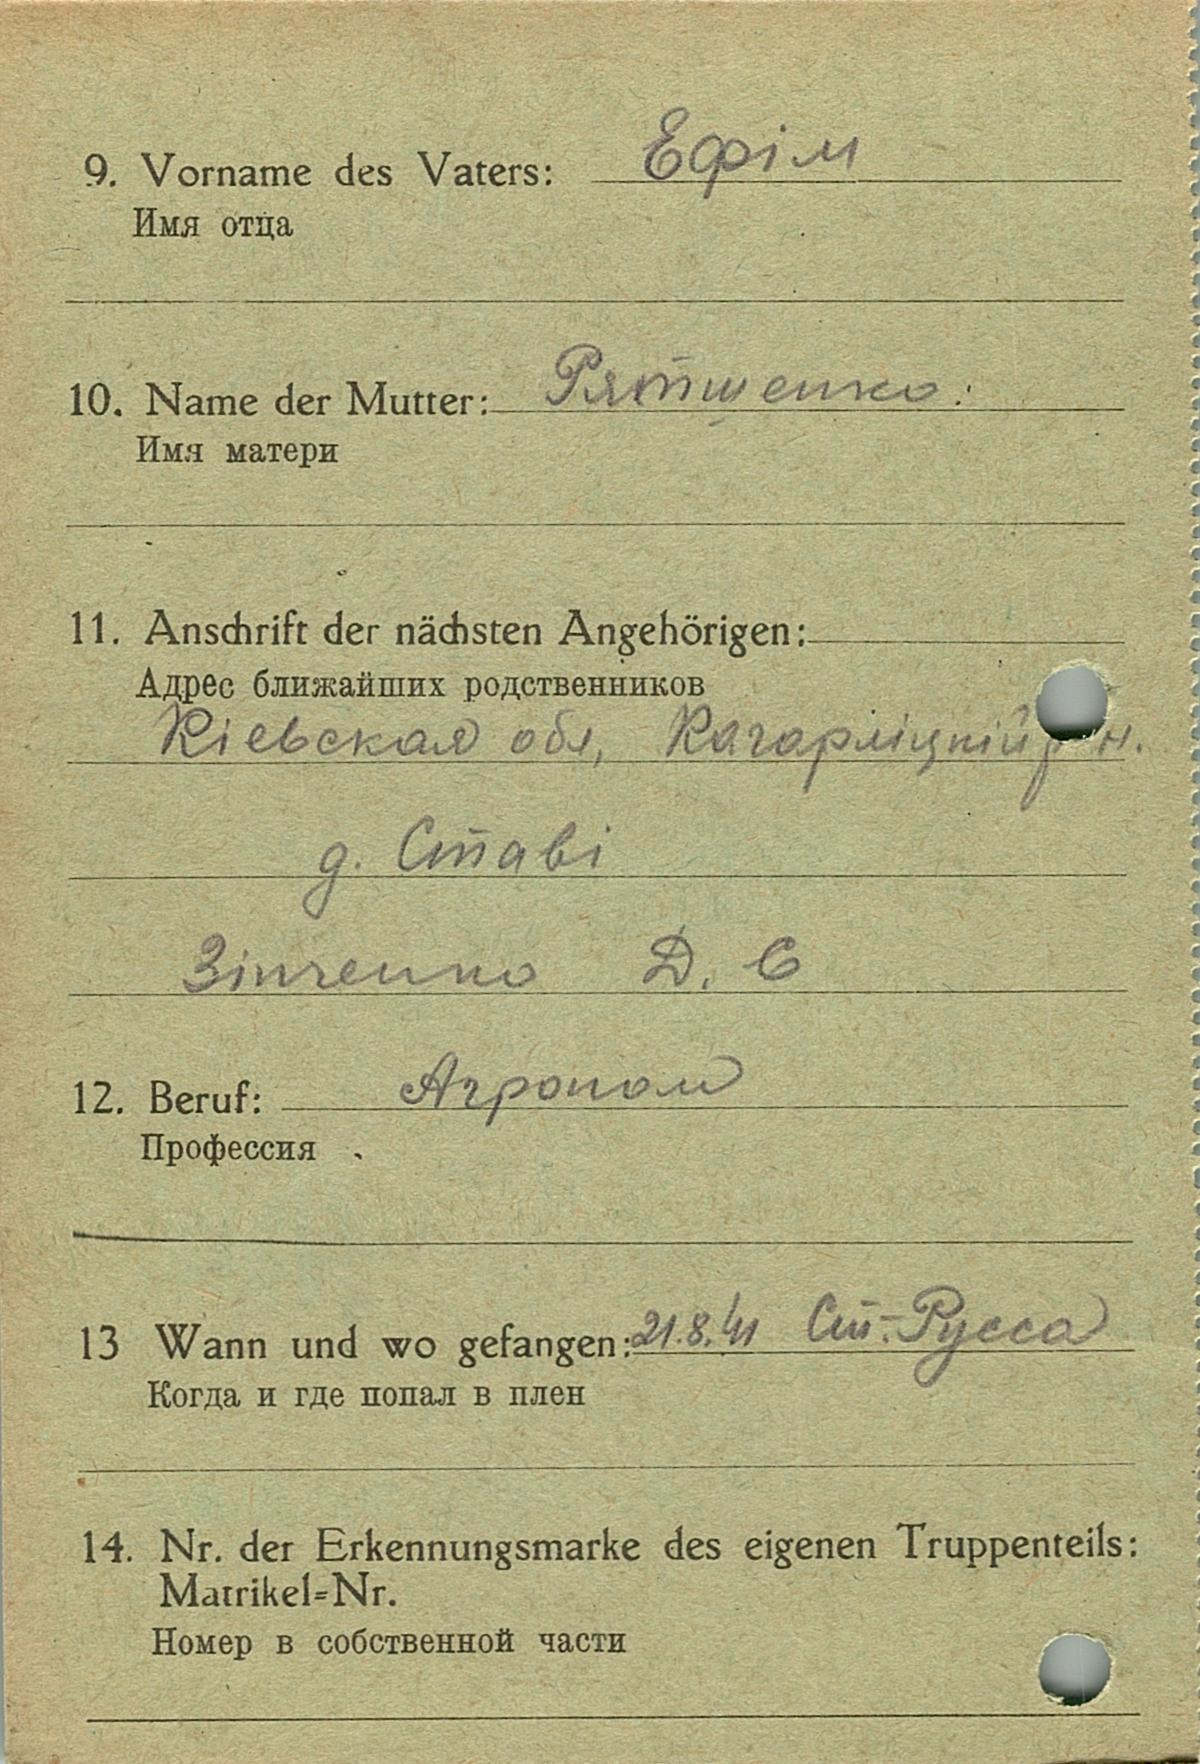 9. Vorname des Vaters: Ефім
Имя отца
10. Name der Mutter:
Имя матери
11. Anschrift der nächsten Angehörigen:
Адрес ближайших родственников
Кіевская обл, Кагарліцкій р н.
д. Ставі
Зінченко Д. С
12. Beruf: Агроном
Профессия
13 Wann und wo gefangen: 21.8.41 Ст.-Русса
Когда и где попал в плен
14. Nr. der Erkennungsmarke des eigenen Truppenteils:
Matrikel=Nr.
Номер в собственной части